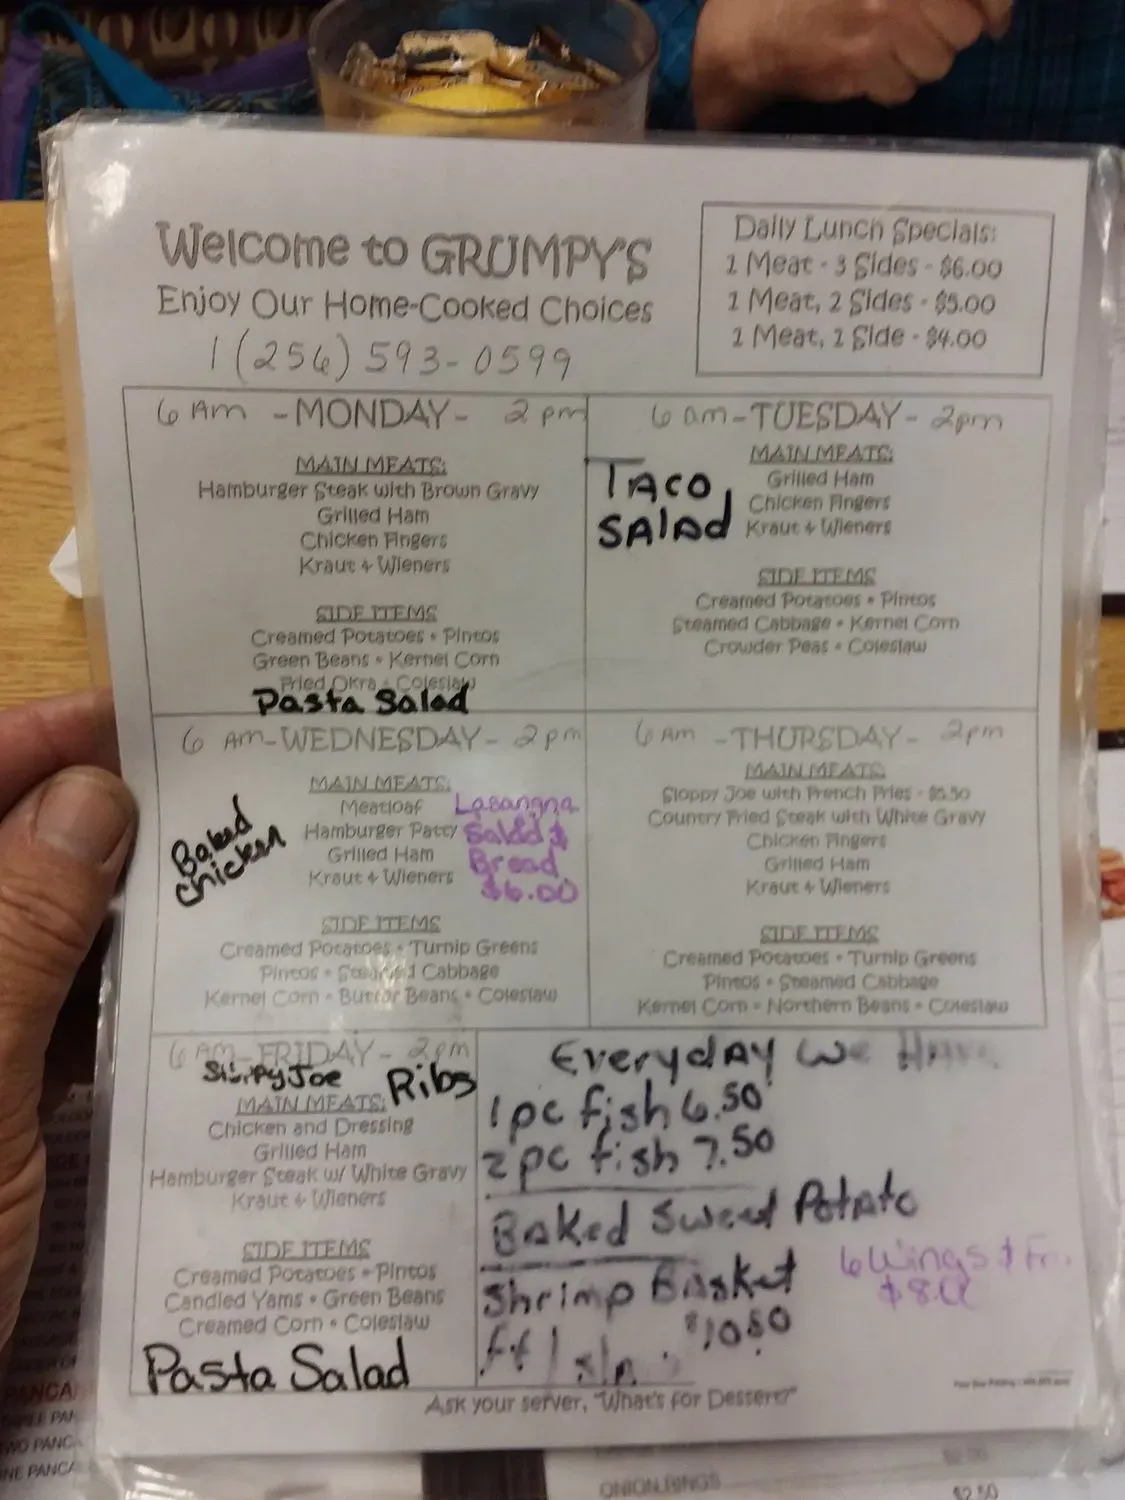 Welcome to GRUMPY'S
Enjoy Our Home-Cooked Choices
1 (256) 593-0599
Daily Lunch Specials:
1 Meat - 3 Sides - $6.00
1 Meat, 2 Sides - $5.00
1 Meat, 1 Side - $4.00
6 Am - MONDAY - 2 pm
MAIN MEATS:
Hamburger Steak with Brown Gravy
Grilled Ham
Chicken Fingers
Kraut & Wieners
SIDE ITEMS
Creamed Potatoes • Pintos
Green Beans • Kernel Corn
Fried Okra • Coleslaw
Pasta Salad
6 am - TUESDAY - 2pm
Taco
Salad
MAIN MEATS:
Grilled Ham
Chicken Fingers
Kraut & Wieners
SIDE ITEMS
Creamed Potatoes • Pintos
Steamed Cabbage • Kernel Corn
Crowder Peas • Coleslaw
6 AM - WEDNESDAY - 2pm
Baked
chicken
MAIN MEATS:
Meatloaf
Hamburger Patty
Grilled Ham
Kraut & Wieners
Lasangna
Salad &
Bread
$6.00
SIDE ITEMS
Creamed Potatoes • Turnip Greens
Pintos • Steamed Cabbage
Kernel Corn • Butter Beans • Coleslaw
6 Am - THURSDAY - 2pm
MAIN MEATS
Sloppy Joe with French Fries - $5.50
Country Fried Steak with White Gravy
Chicken Fingers
Grilled Ham
Kraut & Wieners
SIDE ITEMS
Creamed Potatoes • Turnip Greens
Pintos • Steamed Cabbage
Kernel Corn • Northern Beans • Coleslaw
6 AM - FRIDAY - 2pm
Joe
Ribs
MAIN MEATS:
Chicken and Dressing
Grilled Ham
Hamburger Steak w/ White Gravy
Kraut & Wieners
SIDE ITEMS
Creamed Potatoes • Pintos
Candied Yams • Green Beans
Creamed Corn • Coleslaw
Pasta Salad
Everyday We Have
1 pc fish 6.50
2 pc fish 7.50
Baked Sweet Potato
Shrimp Basket
ff
$10.50
6 Wings &
Ask your server, "What's for Dessert?"
ONION RINGS
$2.50